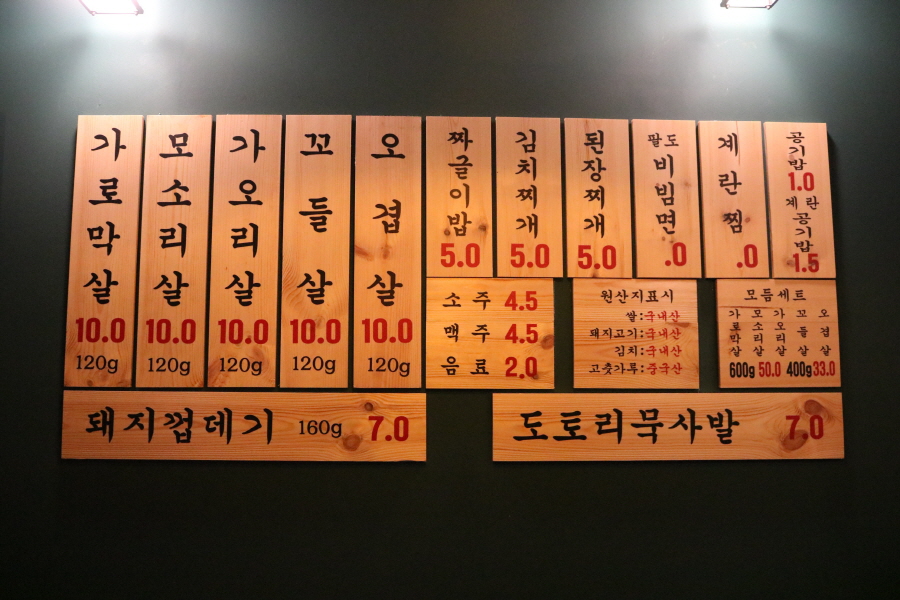 가로막살
10.0
120g
모소리살
10.0
120g
가오리살
10.0
120g
꼬들살
10.0
120g
오겹살
10.0
120g
짜글이밥
5.0
김치찌개
5.0
된장찌개
5.0
팔도
비빔면
.0
계란찜
.0
공기밥
1.0
계란
공기밥
1.5
소주 4.5
맥주 4.5
음료 2.0
원산지표시
쌀:국내산
돼지고기:국내산
김치:국내산
고춧가루:중국산
모듬세트
가로막살
모소리살
가오리살
꼬들살
오겹살
600g 50.0 400g 33.0
돼지껍데기 160g 7.0
도토리묵사발 7.0